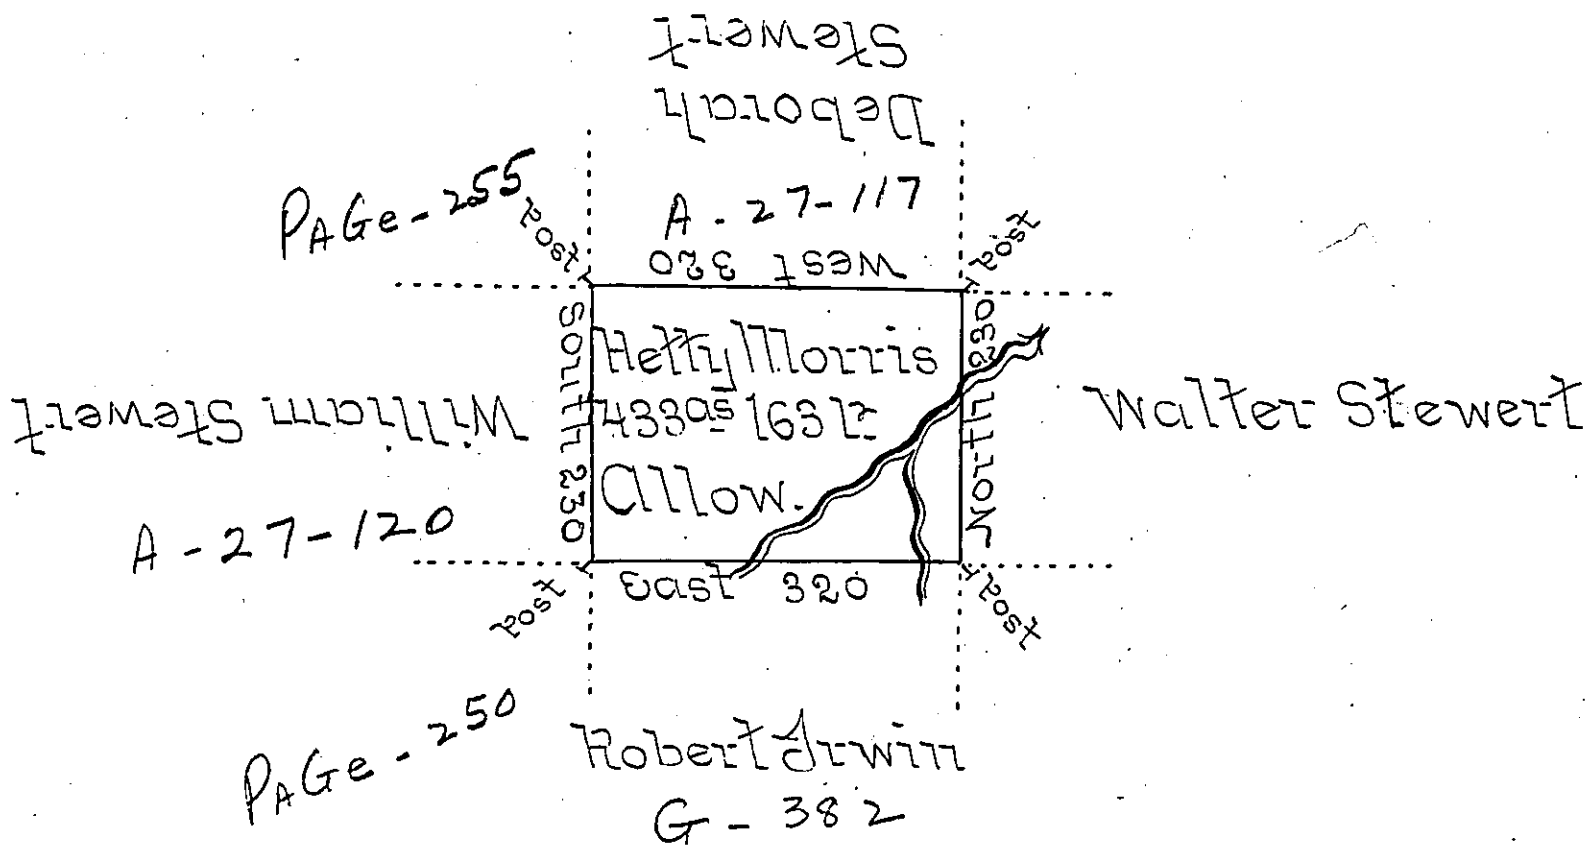 Deborah
Stewert
A - 27-117
PAGe - 255
Post
Post
West 320
South 230
Hetty Morris
433as 163 P.
Allow.
North 230
William Stewert
A - 27-120
Walter Stewert
Post
East 320
Post
PAGe - 250
Robert Irwin
G - 382